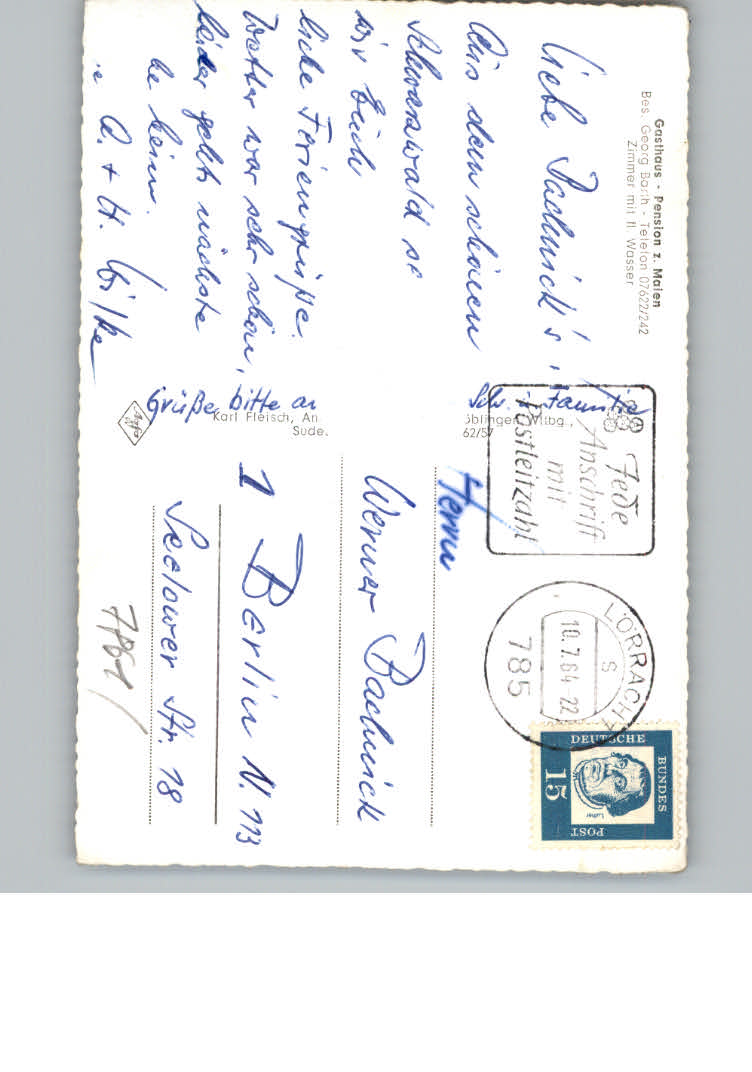 Gasthaus - Pension z. Maien
Bes. Georg Barth - Telefon 07622/242
Zimmer mit fl. Wasser
Liebe Bachnick's,
Aus dem schönen
Schwarzwald se
wir Euch
liche Feriengrüße.
Wetter war sehr schön,
leider gehts nächste
he heim.
e A. + H.
Grüße bitte an
Schw. + Familie
Karl Fleisch, An
Süde.
öblingen Wttbg.,
62/57
Agfa
Jede
Anschrift
mit
Postleitzahl
LÖRRACH 1
S
10.7.64-22
785
DEUTSCHE
BUNDES
POST
15
Luther
Herrn
Werner Bachnick
1 Berlin N. 113
Seelower Str. 18